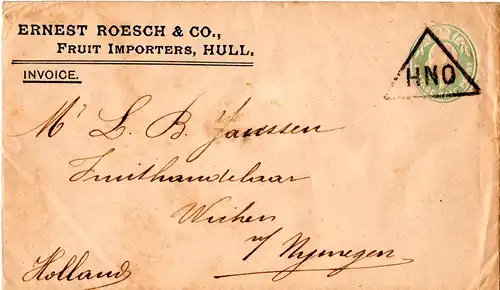 ERNEST ROESCH & CO.,
FRUIT IMPORTERS, HULL.
INVOICE.
HNO
Mr L. B. Janssen
Fruithandelaar
Wichen
n/ Nymegen
Holland